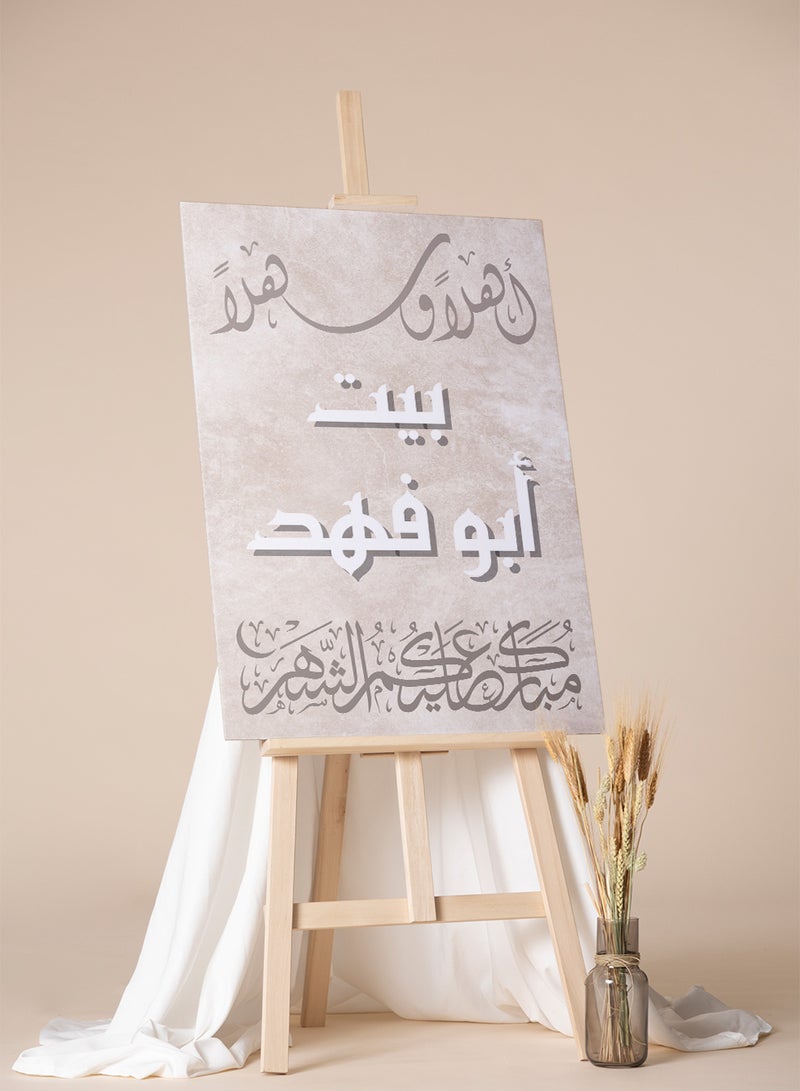 أهلاً وسهلاً
بيت
أبو فهد
مبارك عليكم الشهر